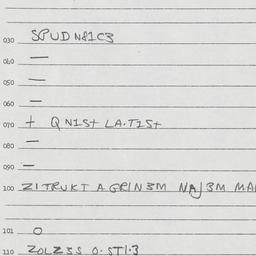 030 SPUDN81C3
040 —
050 —
060 —
070 + QNIST LA.TIST
080 —
090 —
100 ZITRUKT A GRINBM NAJBM MA
101 O
110 ZOLZ3S O.STI.3